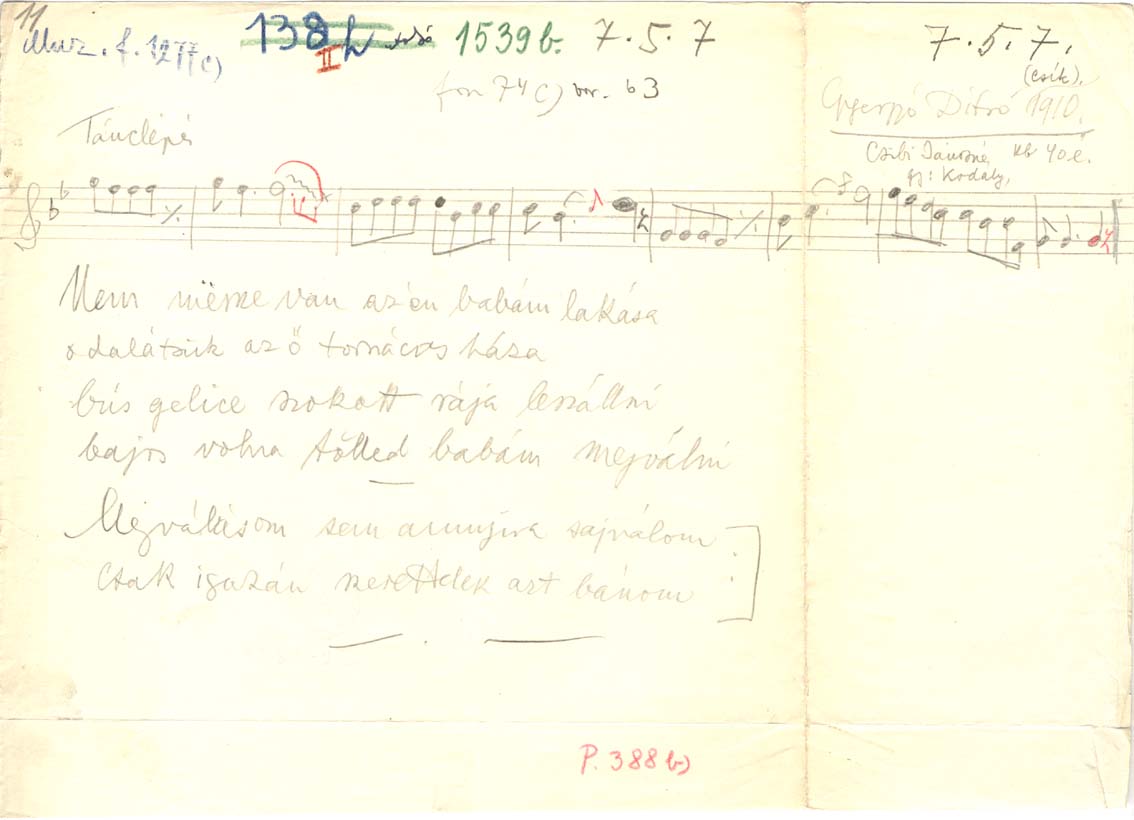 11
Muz. f. 1277 c)
138 h
II
1539 b.
7. 5. 7
7. 5. 7.
(csík).
fon 74 c) var. b3
Gyergyó Ditró 1910.
Csibi Jánosné, kb 40 é.
gy: Kodály,
Tánclépés
Nem messze van az én babám lakása
odalátszik az ő tornácos háza
bús gelice szokott rája leszállni
bajos volna tőlled babám megválni
Megválásom sem annyira sajnálom
csak igazán szerettelek azt bánom
P. 388 b)